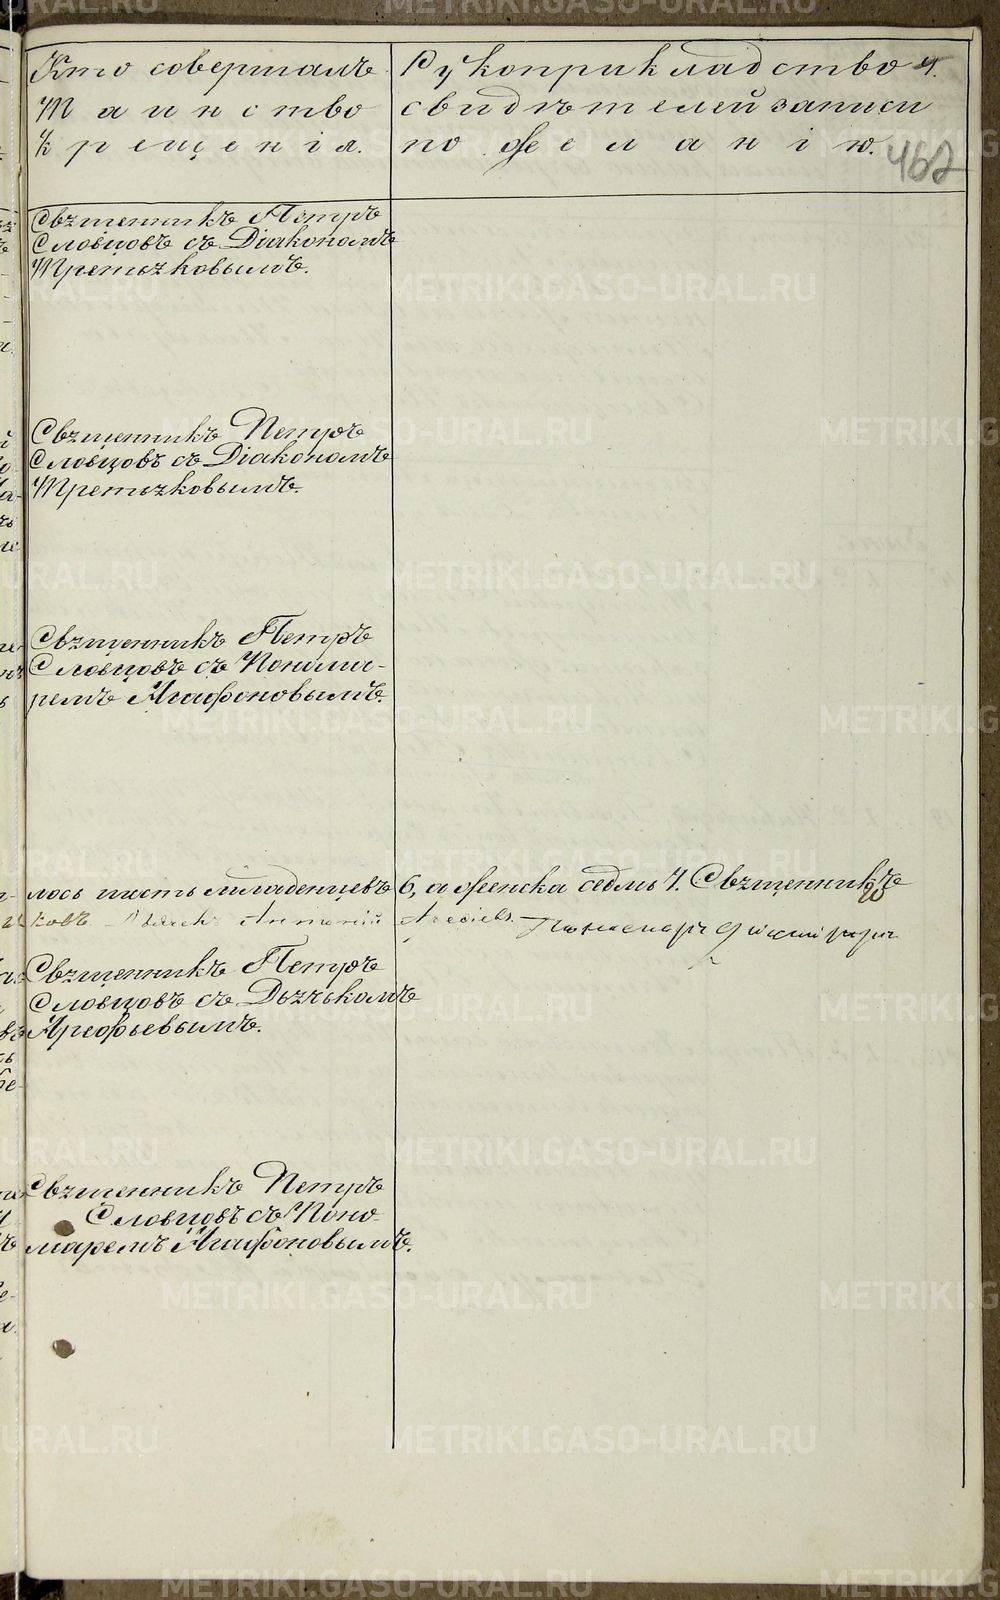 Кто совершалъ
Таинство
Крещенія.
Рукоприкладство
свидѣтелей записи
по желанію.
462
Священникъ Петръ
Словцовъ съ Діакономъ
Третьяковымъ.
Священникъ Петръ
Словцовъ съ Діакономъ
Третьяковымъ.
Священникъ Петръ
Словцовъ съ Понома-
ремъ Агафоновымъ.
лось шесть младенцевъ 6, а женска седмь 7. Священникъ
ковъ
Священникъ Петръ
Словцовъ съ Дьячькомъ
Арефьевымъ.
Священникъ Петръ
Словцовъ съ Поно-
маремъ Агафоновымъ.
METRIKI.GASO-URAL.RU